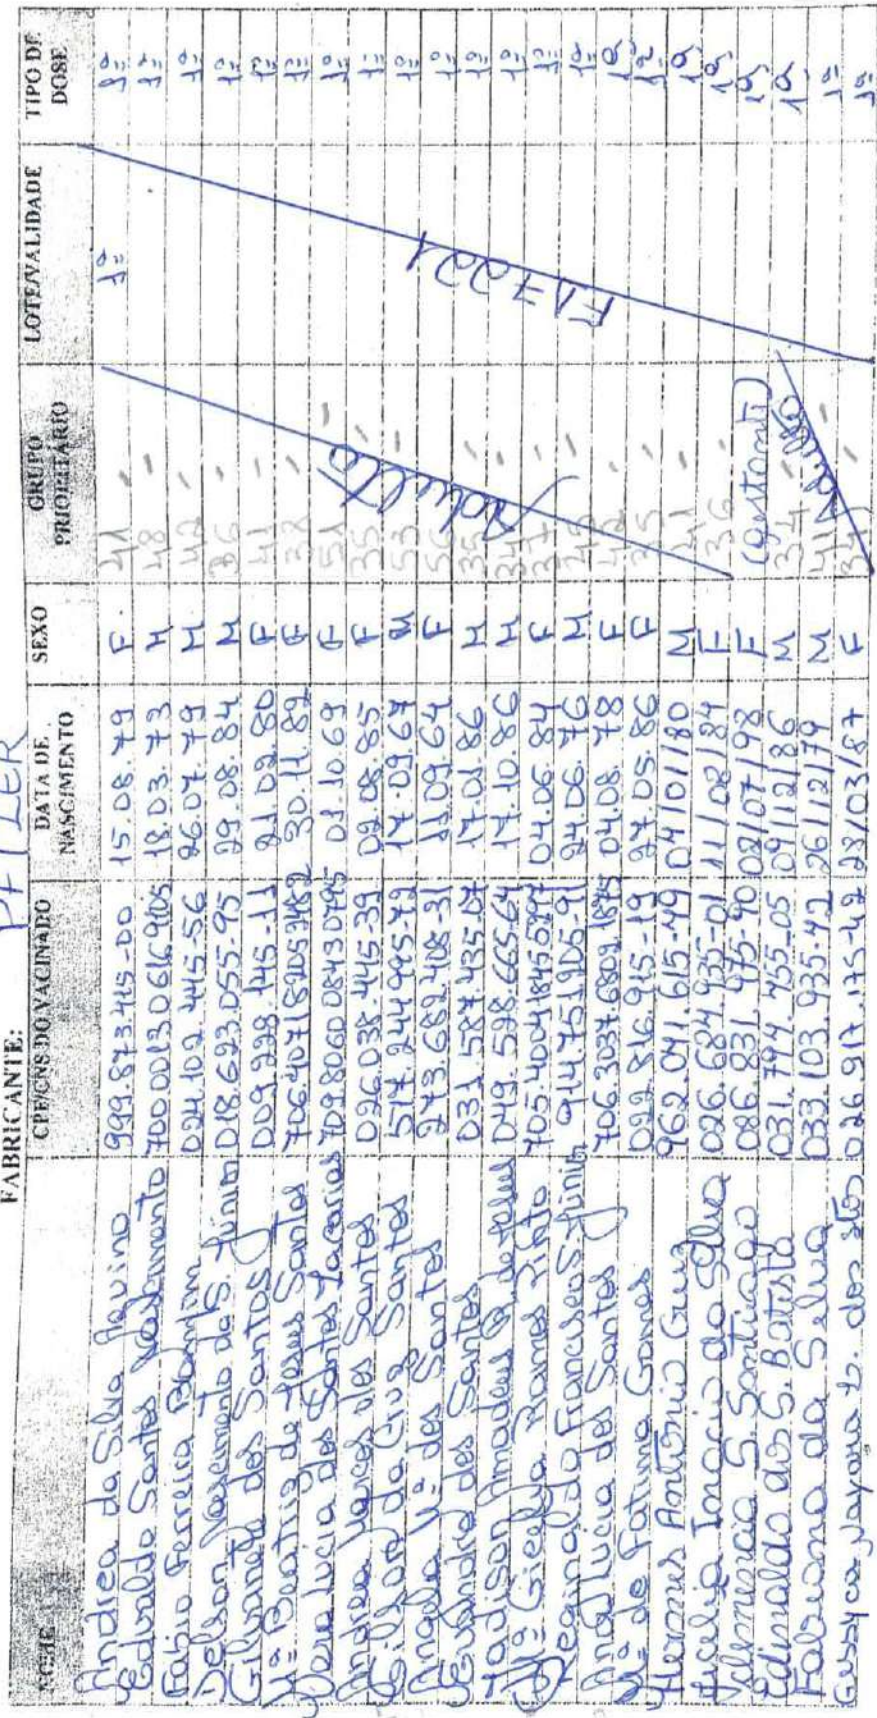 FABRICANTE: PFIZER
NOME CPF/CNS DO VACINADO DATA DE NASCIMENTO SEXO GRUPO PRIORITÁRIO LOTE/VALIDADE TIPO DE DOSE
Andrea da Silva Aquino 999.873.415-00 15.08.79 F 41 1ª 1ª
Edvaldo Santos Nascimento 18.03.73 M 48 1ª
Fabio Ferreira 024.102.445-56 26.07.79 M 42 1ª
Delson Nascimento dos S. Júnior 018.623.055-95 29.08.84 M 36 1ª
Gilvanete dos Santos 009.228.145-11 21.02.80 F 41 1ª
Mª Beatriz de Jesus Santos 30.11.82 F 38 1ª
Vera Lucia dos Santos Zacarias 709806008430795 01.10.69 F 51 1ª
Andrea Marces dos Santos 026.038.445-39 02.08.85 F 35 1ª
Gilson da Cruz Santos 517.244.995-72 17.09.67 M 53 1ª
Angela Mª dos Santos 273.682.408-31 11.09.64 F 56 1ª
Evandro dos Santos 031.587.435-07 17.01.86 M 35 1ª
Madison Amadeus de Jesus 049.528.665-64 17.10.86 M 34 1ª
Mª Gicelya Ramos Pinto 04.06.84 F 37 1ª
Reginaldo Francisco S. Júnior 914.751.205-91 24.06.76 M 1ª
Ana Lucia dos Santos 706.3037.6802.1875 04.08.78 F 42 1ª
Mª de Fatima Gomes 022.816.915-19 27.05.86 F 35 1ª
Hermes Antônio Cruz 962.041.615-49 04/01/80 M 41 1ª
Jucelia Inacio da Silva 026.684.935-01 11/08/84 F 36 1ª
Valmencia S. Santiago 086.831.475-90 02/07/98 F (gestante) 1ª
Edinaldo dos S. Batista 031.794.755-05 09/12/86 M 34 1ª
Fabiano da Silva 033.103.935-42 26/12/79 M 41 1ª
Gessyca Nayara dos Stos 026.917.175-42 28/03/87 F 34 1ª
Adulto
F17221
Adulto